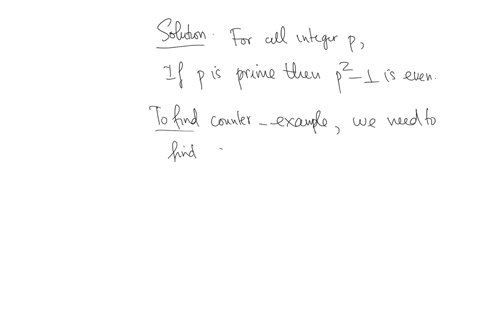 Solution. For all integer p,
If p is prime then p²-1 is even.
To find counter-example, we need to
find